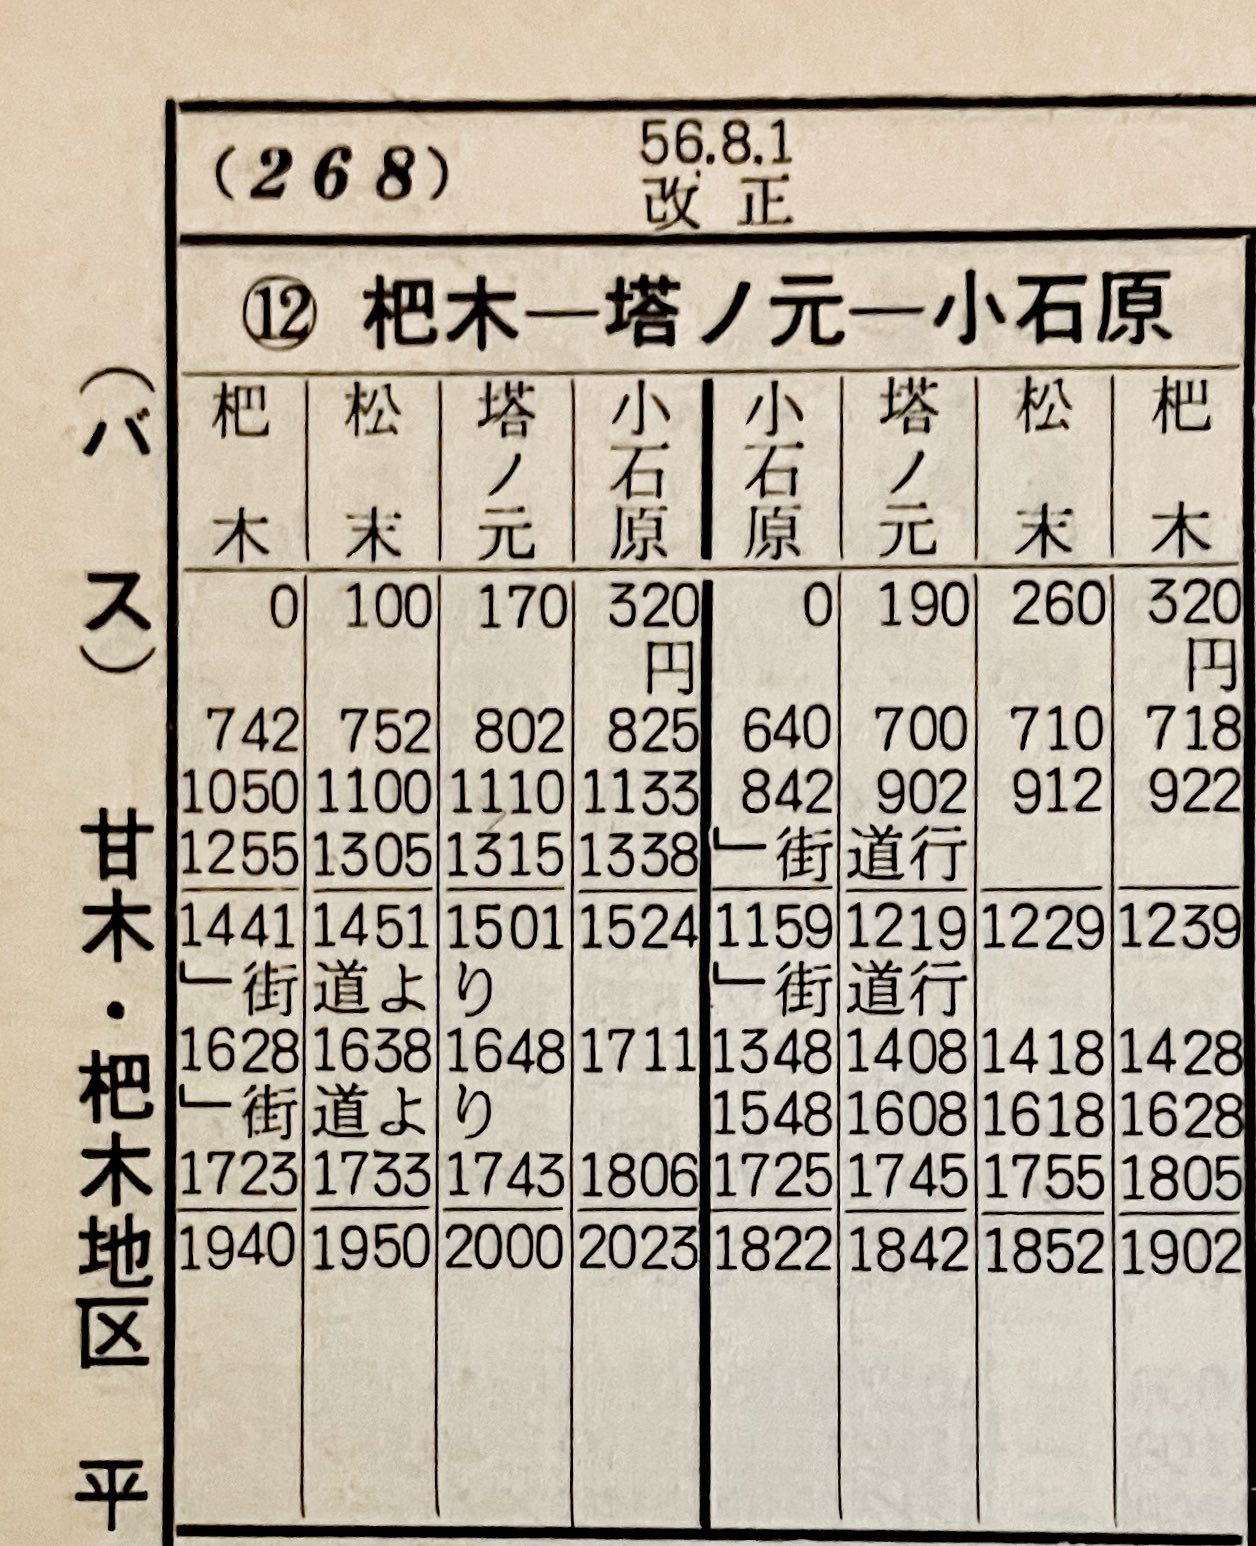 (268) 56.8.1
改正
⑫ 杷木―塔ノ元―小石原
杷木 松末 塔ノ元 小石原 小石原 塔ノ元 松末 杷木
0 100 170 320 0 190 260 320
円 円
742 752 802 825 640 700 710 718
1050 1100 1110 1133 842 902 912 922
1255 1305 1315 1338 └─街道行
1441 1451 1501 1524 1159 1219 1229 1239
└─街道より └─街道行
1628 1638 1648 1711 1348 1408 1418 1428
└─街道より 1548 1608 1618 1628
1723 1733 1743 1806 1725 1745 1755 1805
1940 1950 2000 2023 1822 1842 1852 1902
(バス) 甘木・杷木地区 平